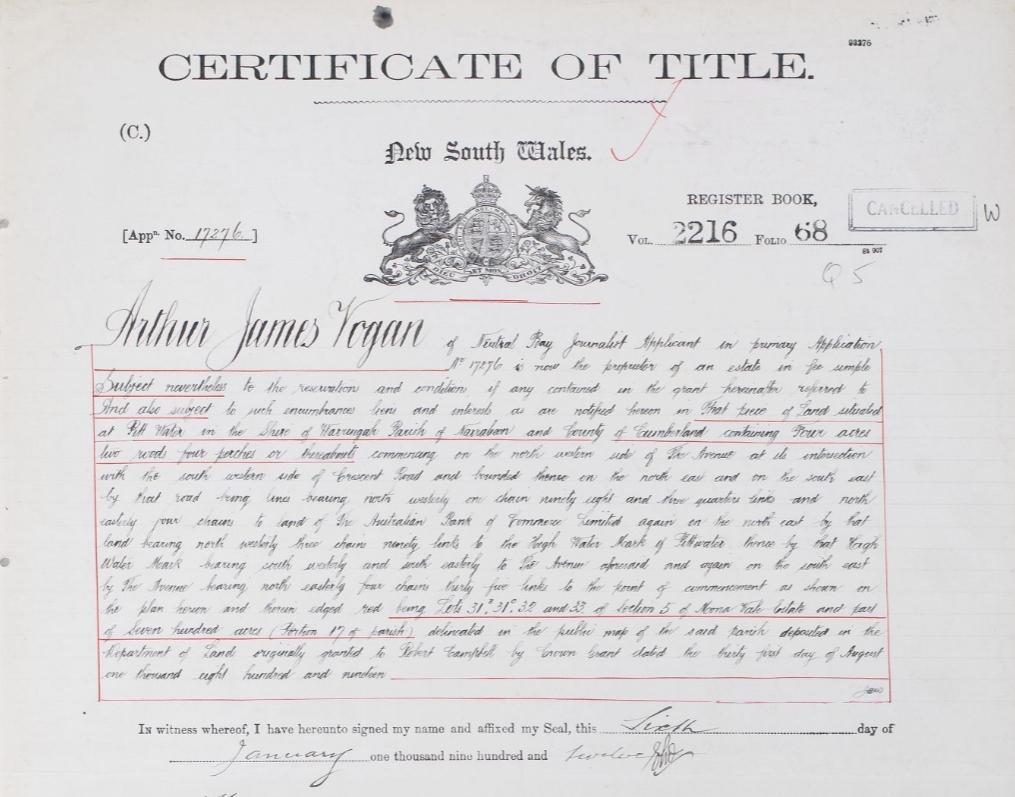 93376
CERTIFICATE OF TITLE.
(C.)
New South Wales.
REGISTER BOOK,
CANCELLED W
[Appn. No. 17276]
Vol. 2216 Folio 68
DIEU ET MON DROIT
Q 5
Arthur James Vogan of Neutral Bay Journalist Applicant in primary Application
No 17276 is now the proprietor of an estate in fee simple
Subject nevertheless to the reservations and conditions if any contained in the grant hereinafter referred to
And also subject to such encumbrances liens and interests as are notified hereon in That piece of Land situated
at Pitt Water in the Shire of Warringah Parish of Narrabeen and County of Cumberland containing Four acres
two roods four perches or thereabouts commencing on the north western side of The Avenue at its intersection
with the south western side of Crescent Road and bounded thence on the north east and on the south east
by that road being lines bearing north westerly one chain ninety eight and three quarters links and north
easterly four chains to land of The Australian Bank of Commerce Limited again on the north east by that
land bearing north westerly three chains ninety links to the High Water Mark of Pittwater thence by that High
Water Mark bearing south westerly and south easterly to The Avenue aforesaid and again on the south east
by The Avenue bearing north easterly four chains thirty five links to the point of commencement as shown on
the plan hereon and therein edged red being Lots 31 31 32 and 33 of section 5 of Mona Vale Estate and part
of Seven hundred acres (Portion 17 of parish) delineated in the public map of the said parish deposited in the
Department of Lands originally granted to Robert Campbell by Crown Grant dated the thirty first day of August
one thousand eight hundred and nineteen
In witness whereof, I have hereunto signed my name and affixed my Seal, this Sixth day of
January one thousand nine hundred and twelve